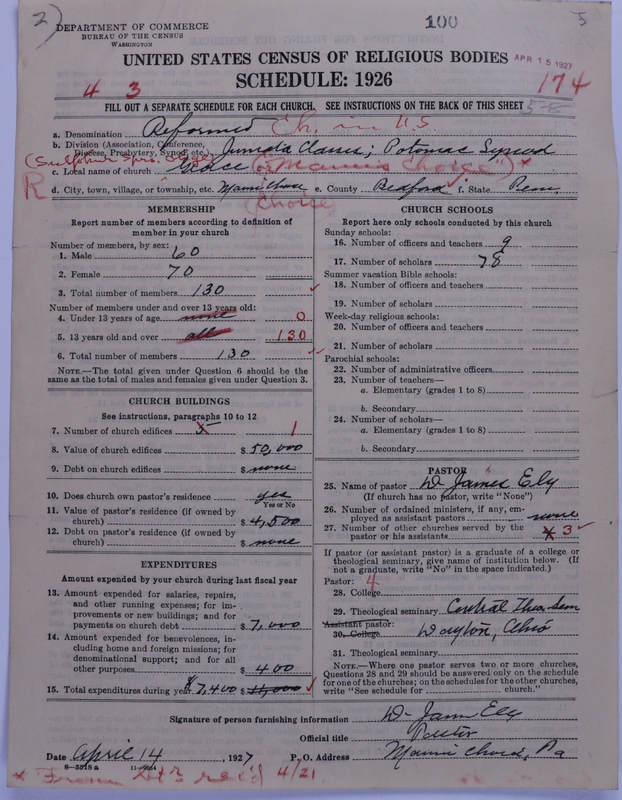 2)
DEPARTMENT OF COMMERCE
BUREAU OF THE CENSUS
WASHINGTON
100
5
UNITED STATES CENSUS OF RELIGIOUS BODIES
APR 15 1927
SCHEDULE: 1926
4 3
174
FILL OUT A SEPARATE SCHEDULE FOR EACH CHURCH. SEE INSTRUCTIONS ON THE BACK OF THIS SHEET
5-8
a. Denomination Reformed Ch. in U.S.
b. Division (Association, Conference, Diocese, Presbytery, Synod, etc.) Juniata Classis; Potomac Synod
c. Local name of church Grace (or Mann's Choice") *
R
d. City, town, village, or township, etc. Manns Choice e. County Bedford f. State Penn.
Choice
MEMBERSHIP
Report number of members according to definition of
member in your church
Number of members, by sex:
1. Male 60
2. Female 70
3. Total number of members 130
Number of members under and over 13 years old:
4. Under 13 years of age none 0
5. 13 years old and over all 130
6. Total number of members 130
NOTE.—The total given under Question 6 should be the
same as the total of males and females given under Question 3.
CHURCH BUILDINGS
See instructions, paragraphs 10 to 12
7. Number of church edifices 5 1
8. Value of church edifices $ 50,000
9. Debt on church edifices $ none
10. Does church own pastor's residence yes
Yes or No
11. Value of pastor's residence (if owned by
church) $ 4,500
12. Debt on pastor's residence (if owned by
church) $ none
EXPENDITURES
Amount expended by your church during last fiscal year
13. Amount expended for salaries, repairs,
and other running expenses; for im-
provements or new buildings; and for
payments on church debt $ 7,000
14. Amount expended for benevolences, in-
cluding home and foreign missions; for
denominational support; and for all
other purposes $ 400
15. Total expenditures during year $ 7,400 $ 11,000
CHURCH SCHOOLS
Report here only schools conducted by this church
Sunday schools:
16. Number of officers and teachers 9
17. Number of scholars 78
Summer vacation Bible schools:
18. Number of officers and teachers
19. Number of scholars
Week-day religious schools:
20. Number of officers and teachers
21. Number of scholars
Parochial schools:
22. Number of administrative officers
23. Number of teachers—
a. Elementary (grades 1 to 8)
b. Secondary
24. Number of scholars—
a. Elementary (grades 1 to 8)
b. Secondary
PASTOR
25. Name of pastor D- James Ely
(If church has no pastor, write "None")
26. Number of ordained ministers, if any, em-
ployed as assistant pastors none
27. Number of other churches served by the
pastor or his assistants 3
If pastor (or assistant pastor) is a graduate of a college or
theological seminary, give name of institution below. (If
not a graduate, write "No" in the space indicated.)
Pastor: 4
28. College
29. Theological seminary Central Theo. Sem
Assistant pastor:
30. College Dayton, Ohio
31. Theological seminary
NOTE.—Where one pastor serves two or more churches,
Questions 28 and 29 should be answered only on the schedule
for one of the churches; on the schedules for the other churches,
write "See schedule for church."
Signature of person furnishing information D- James Ely
Official title Pastor
Date April 14, 1927 P. O. Address Manns Choice, Pa
8-5518a
* From let's rec'd 4/21.